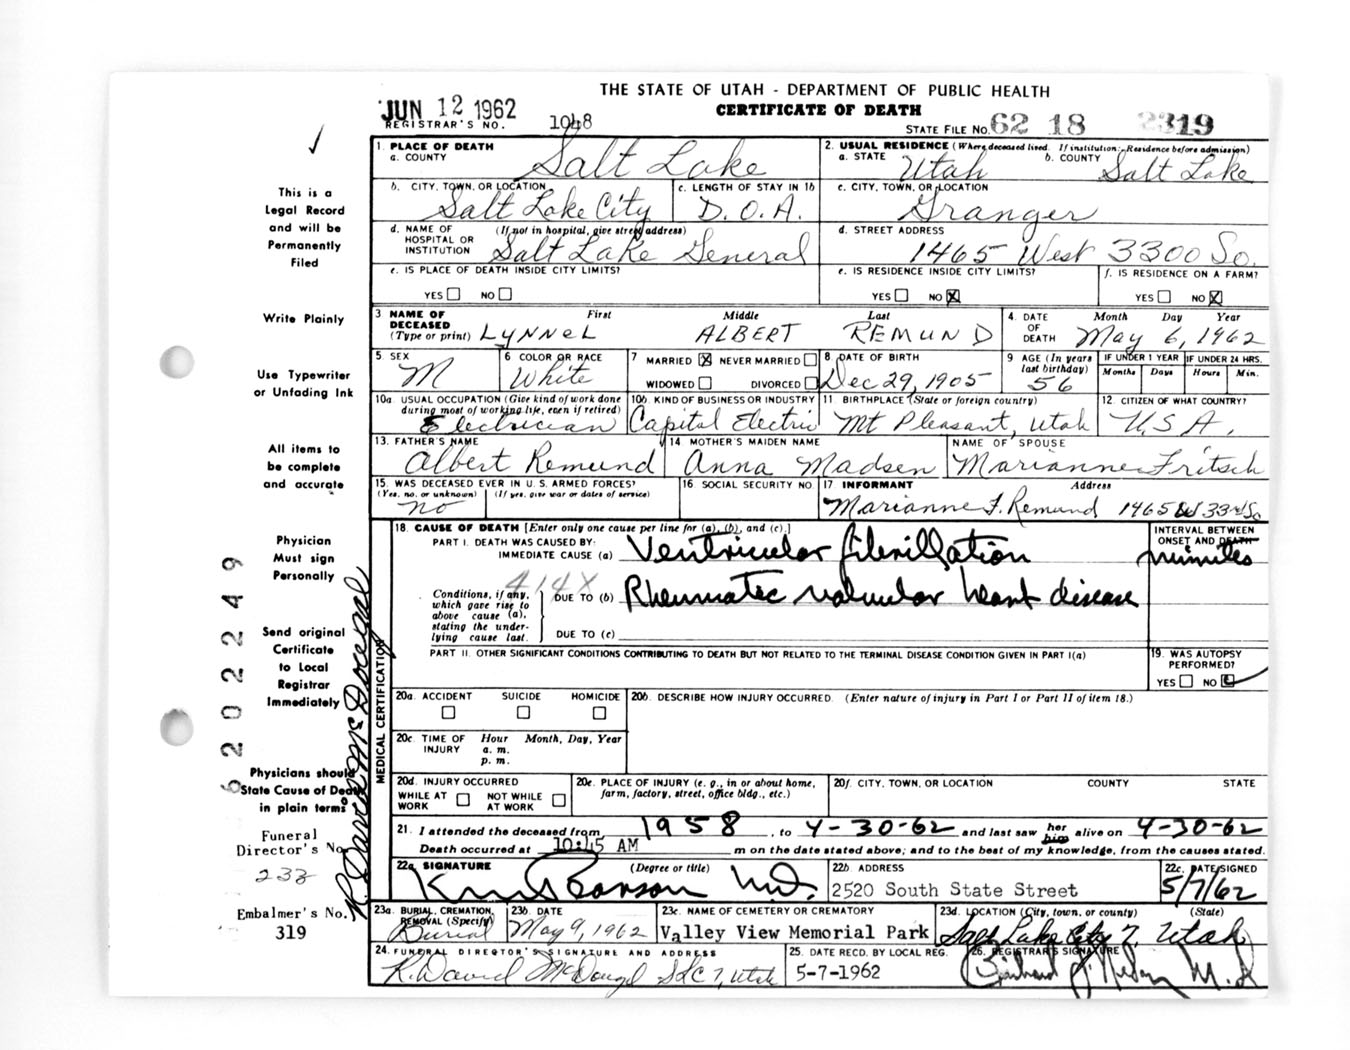 THE STATE OF UTAH - DEPARTMENT OF PUBLIC HEALTH
JUN 12 1962
CERTIFICATE OF DEATH
REGISTRAR'S NO. 1048
STATE FILE NO. 62 18 2319
1. PLACE OF DEATH
a. COUNTY Salt Lake
2. USUAL RESIDENCE (Where deceased lived. If institution: Residence before admission)
a. STATE Utah b. COUNTY Salt Lake
This is a
Legal Record
and will be
Permanently
Filed
b. CITY, TOWN, OR LOCATION Salt Lake City
c. LENGTH OF STAY IN 1b D.O.A.
c. CITY, TOWN, OR LOCATION Granger
d. NAME OF HOSPITAL OR INSTITUTION (If not in hospital, give street address) Salt Lake General
d. STREET ADDRESS 1465 West 3300 So.
e. IS PLACE OF DEATH INSIDE CITY LIMITS?
YES NO
e. IS RESIDENCE INSIDE CITY LIMITS?
YES NO X
f. IS RESIDENCE ON A FARM?
YES NO X
Write Plainly
3 NAME OF DECEASED (Type or print) First Middle Last
LYNNEL ALBERT REMUND
4. DATE OF DEATH Month Day Year
May 6, 1962
Use Typewriter
or Unfading Ink
5. SEX M
6 COLOR OR RACE White
7 MARRIED X NEVER MARRIED
WIDOWED DIVORCED
8 DATE OF BIRTH Dec 29, 1905
9 AGE (In years last birthday) 56
IF UNDER 1 YEAR Months Days
IF UNDER 24 HRS. Hours Min.
10a. USUAL OCCUPATION (Give kind of work done during most of working life, even if retired) Electrician
10b. KIND OF BUSINESS OR INDUSTRY Capital Electric
11 BIRTHPLACE (State or foreign country) Mt Pleasant, Utah
12. CITIZEN OF WHAT COUNTRY? U.S.A.
All items to
be complete
and accurate
13. FATHER'S NAME Albert Remund
14 MOTHER'S MAIDEN NAME Anna Madsen
NAME OF SPOUSE Marianne Fritsch
15. WAS DECEASED EVER IN U.S. ARMED FORCES?
(Yes, no, or unknown) (If yes, give war or dates of service)
no
16 SOCIAL SECURITY NO.
17 INFORMANT Address
Marianne F. Remund 1465 W 33rd So
Physician
Must sign
Personally
18. CAUSE OF DEATH [Enter only one cause per line for (a), (b), and (c).]
INTERVAL BETWEEN ONSET AND DEATH
PART I. DEATH WAS CAUSED BY:
IMMEDIATE CAUSE (a) Ventricular fibrillation minutes
414X
Conditions, if any, which gave rise to above cause (a), stating the underlying cause last.
DUE TO (b) Rheumatic valvular heart disease
DUE TO (c)
Send original
Certificate
to Local
Registrar
Immediately
6202249
R. David McDougal
MEDICAL CERTIFICATION
PART II. OTHER SIGNIFICANT CONDITIONS CONTRIBUTING TO DEATH BUT NOT RELATED TO THE TERMINAL DISEASE CONDITION GIVEN IN PART I(a)
19. WAS AUTOPSY PERFORMED?
YES NO
20a. ACCIDENT SUICIDE HOMICIDE
20b. DESCRIBE HOW INJURY OCCURRED. (Enter nature of injury in Part I or Part II of item 18.)
20c. TIME OF INJURY Hour Month, Day, Year
a. m.
p. m.
20d. INJURY OCCURRED
WHILE AT WORK NOT WHILE AT WORK
20e. PLACE OF INJURY (e. g., in or about home, farm, factory, street, office bldg., etc.)
20f. CITY, TOWN, OR LOCATION COUNTY STATE
Physicians should
State Cause of Death
in plain terms
21. I attended the deceased from 1958, to 4-30-62 and last saw her him alive on 4-30-62
Death occurred at 10:45 AM m on the date stated above; and to the best of my knowledge, from the causes stated.
Funeral
Director's No.
233
22a. SIGNATURE (Degree or title) M.D.
22b. ADDRESS 2520 South State Street
22c. DATE SIGNED 5/7/62
Embalmer's No.
319
23a. BURIAL, CREMATION, REMOVAL (Specify) Burial
23b. DATE May 9, 1962
23c. NAME OF CEMETERY OR CREMATORY Valley View Memorial Park
23d. LOCATION (City, town, or county) (State) Salt Lake City 7, Utah
24. FUNERAL DIRECTOR'S SIGNATURE AND ADDRESS R. David McDougal SLC 7, Utah
25. DATE RECD. BY LOCAL REG. 5-7-1962
26. REGISTRAR'S SIGNATURE M.D.